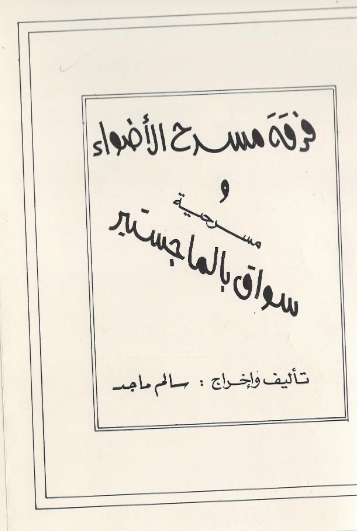 فرقة مسرح الأضواء
و
مسرحية
سواق بالماجستير
تأليف وإخراج : سالم ماجد